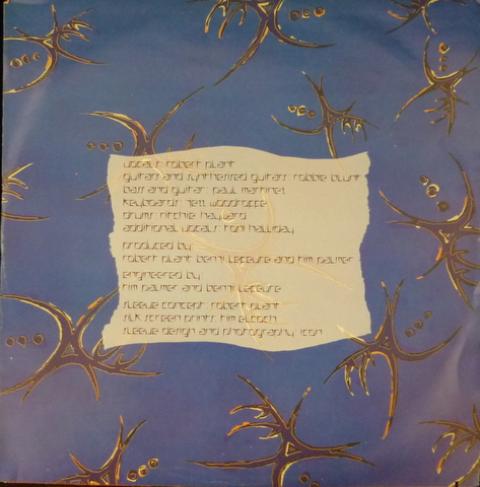 vocals: robert plant
guitars and synthesized guitars: robbie blunt
bass and guitar: paul martinez
keyboards: jezz woodroffe
drums: ritchie hayward
additional vocals: toni halliday
produced by
robert plant benji lefevre and tim palmer
engineered by
tim palmer and benji lefevre
sleeve concept: robert plant
silk screen prints: kim elcoch
sleeve design and photography: icon